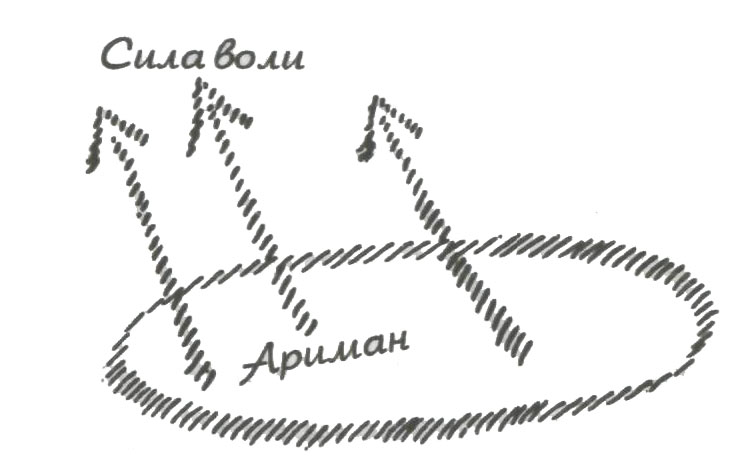 Сила воли
Ариман